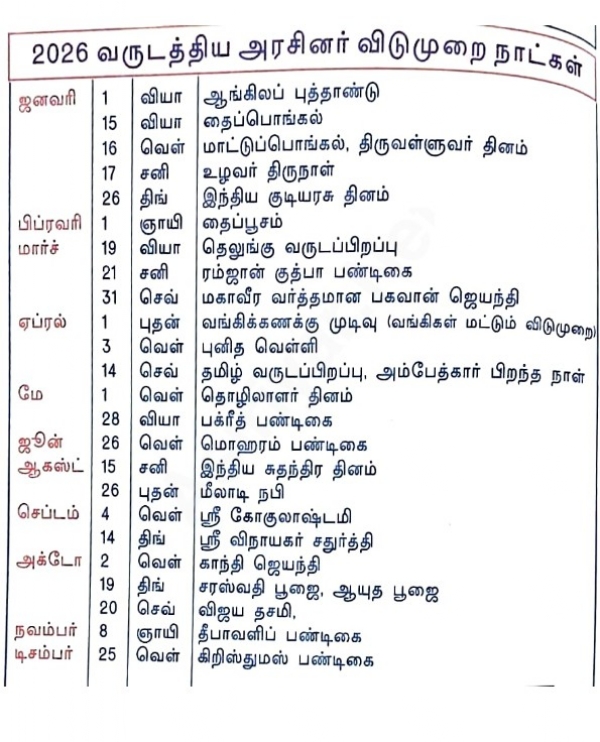 2026 வருடத்திய அரசினர் விடுமுறை நாட்கள்
ஜனவரி 1 வியா ஆங்கிலப் புத்தாண்டு
15 வியா தைப்பொங்கல்
16 வெள் மாட்டுப்பொங்கல், திருவள்ளுவர் தினம்
17 சனி உழவர் திருநாள்
26 திங் இந்திய குடியரசு தினம்
பிப்ரவரி 1 ஞாயி தைப்பூசம்
மார்ச் 19 வியா தெலுங்கு வருடப்பிறப்பு
21 சனி ரம்ஜான் குத்பா பண்டிகை
31 செவ் மகாவீர வர்த்தமான பகவான் ஜெயந்தி
ஏப்ரல் 1 புதன் வங்கிக்கணக்கு முடிவு (வங்கிகள் மட்டும் விடுமுறை)
3 வெள் புனித வெள்ளி
14 செவ் தமிழ் வருடப்பிறப்பு, அம்பேத்கார் பிறந்த நாள்
மே 1 வெள் தொழிலாளர் தினம்
28 வியா பக்ரீத் பண்டிகை
ஜூன் 26 வெள் மொஹரம் பண்டிகை
ஆகஸ்ட் 15 சனி இந்திய சுதந்திர தினம்
26 புதன் மீலாடி நபி
செப்டம் 4 வெள் ஸ்ரீ கோகுலாஷ்டமி
14 திங் ஸ்ரீ விநாயகர் சதுர்த்தி
அக்டோ 2 வெள் காந்தி ஜெயந்தி
19 திங் சரஸ்வதி பூஜை, ஆயுத பூஜை
20 செவ் விஜய தசமி,
நவம்பர் 8 ஞாயி தீபாவளிப் பண்டிகை
டிசம்பர் 25 வெள் கிறிஸ்துமஸ் பண்டிகை